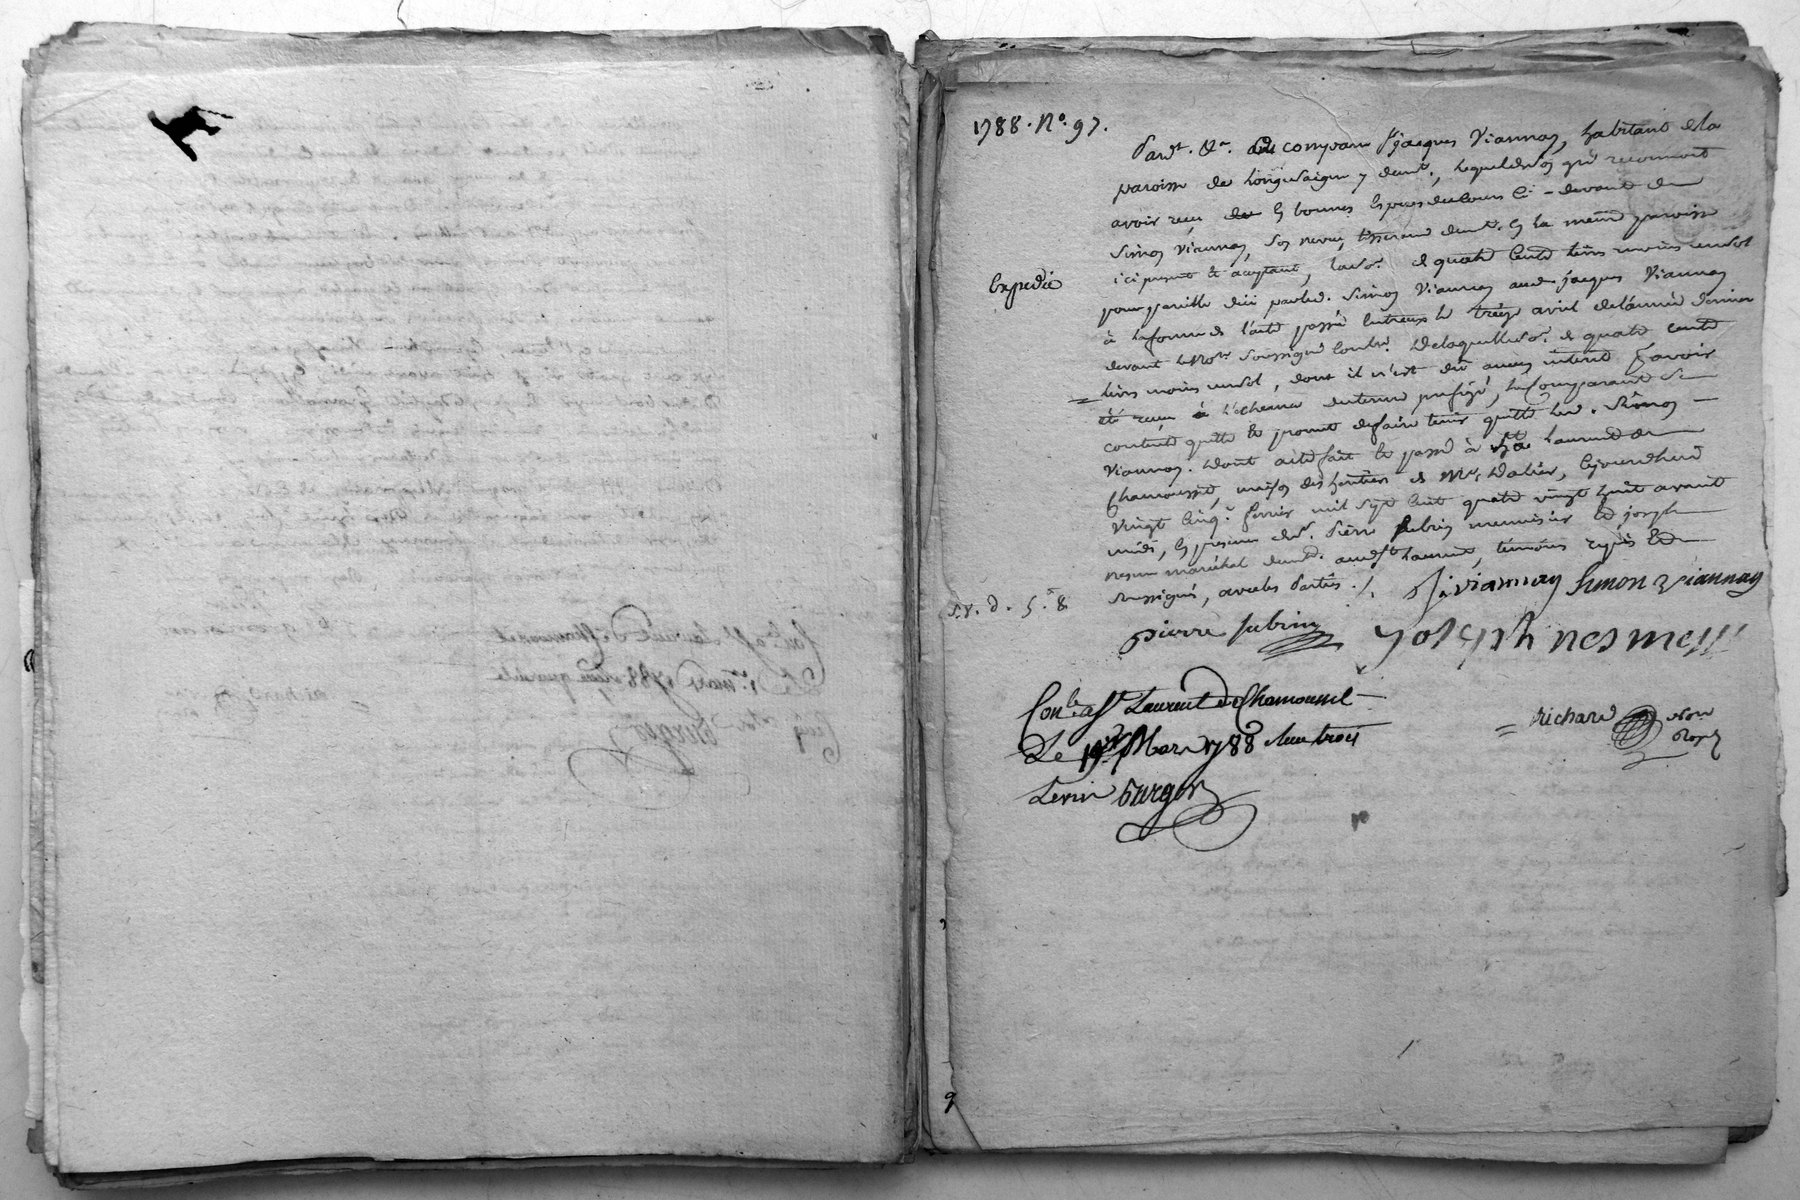 1788. N°. 97.
Pard.t &a. est comparu Sr jacques Viannay, habitant de la
paroisse de Longessaigne y demt., lequel de son gré reconnoit
avoir reçu en bonnes especes de cours ci-devant de
Simon Viannay, son neveu, tisserand demt. en la même paroisse
ici present et acceptant, la so.e de quatre cents livres moins un sol
Expedié
pour pareille düe par led. Simon Viannay aud. jacques Viannay
à la forme de l'acte passé entreux le treize avril de l'année derniere
devant le Nore soussigné De laquelle so.e de quatre cents
livres moins un sol, dont il n'est dû aucun interet pavoir
été reçu à l'échéance du terme prefigé, le comparant se
contente quitte et promet de faire tenir quitte led. Simon
Viannay. Dont acte fait et passé à St Laurent de
Chamousset, maison des héritiers de Me Dalier, cejourdhui
vingt cinq fevrier mil sept cent quatre vingt huit avant
midi, en presence de Sr. Pierre Subrin menuisier et joseph
nesme maréchal demt. aud. St Laurent, témoins requis et
soussignés, avec les parties ./.
J. viannay Simon viannay
pierre subrin joseph nesme
Conlé. a St Laurent de Chamousset
Le Mars 1788 Reçu trois
richard Nore
Royal